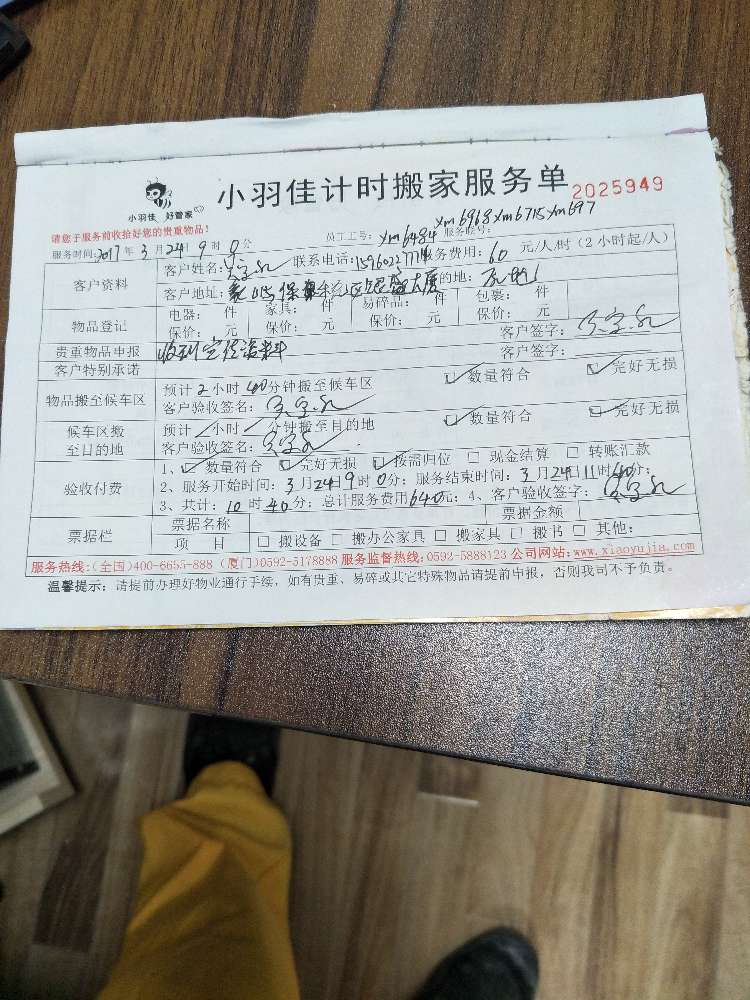 小羽佳 好管家
小羽佳计时搬家服务单 2025949
请您于服务前收拾好您的贵重物品!
服务时间:2017年3月24日9时0分 员工工号: xm6484 xm6968 xm6715 xm697 服务账号:
客户资料 客户姓名: 联系电话: 服务费用:60元/人/时(2小时起/人)
客户地址: 目的地:
物品登记 电器: 件 家具: 件 易碎品: 件 包裹: 件
保价: 元 保价: 元 保价: 元 保价: 元
贵重物品申报 客户签字:
客户特别承诺 收到宣传资料 客户签字:
物品搬至候车区 预计2小时40分钟搬至候车区 ☑数量符合 ☑完好无损
客户验收签名:
候车区搬至目的地 预计/小时/分钟搬至目的地 ☑数量符合 ☑完好无损
客户验收签名:
验收付费 1、☑数量符合 ☑完好无损 ☑按需归位 □现金结算 □转账汇款
2、服务开始时间:3月24日9时0分;服务结束时间:3月24日11时40分;
3、共计:10时40分;总计服务费用640元;4、客户验收签字:
票据栏 票据名称 票据金额
项 目 □搬设备 □搬办公家具 □搬家具 □搬书 □其他:
服务热线:(全国)400-6655-888 (厦门)0592-5178888 服务监督热线:0592-5888123 公司网站:www.xiaoyujia.com
温馨提示:请提前办理好物业通行手续,如有贵重、易碎或其它特殊物品请提前申报,否则我司不予负责。